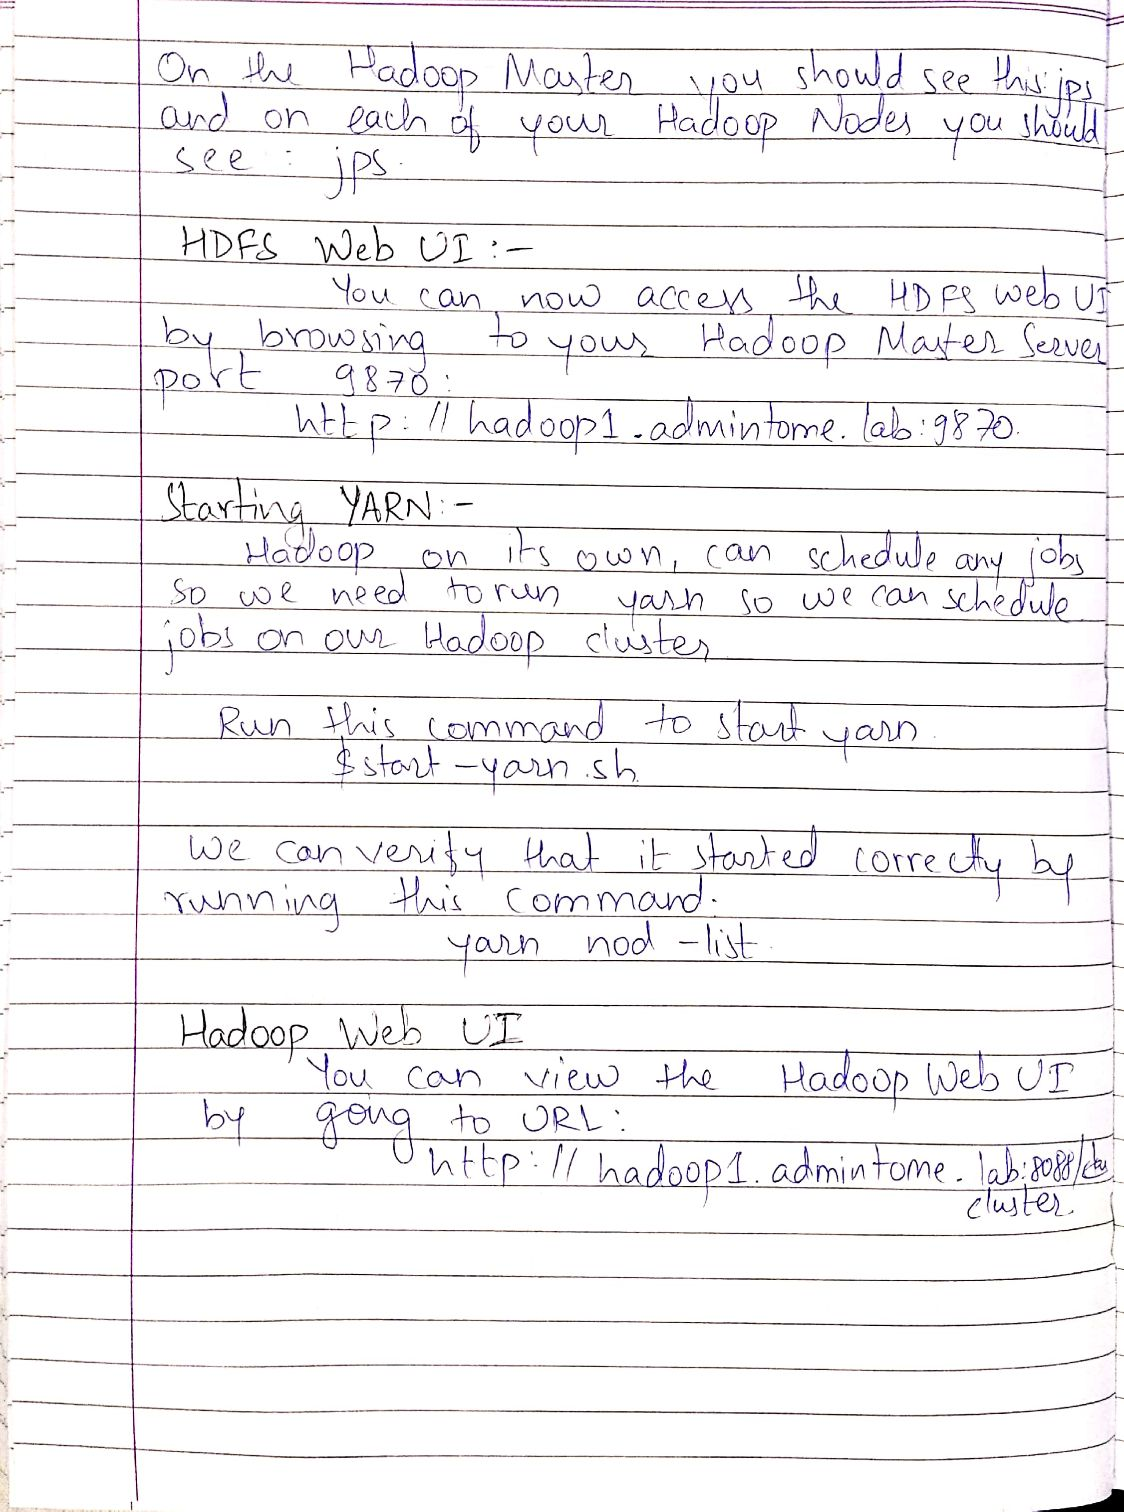 On the Hadoop Master you should see this: jps
and on each of your Hadoop Nodes you should
see : jps.
HDFS Web UI :-
You can now access the HDFS web UI
by browsing to your Hadoop Master Server
port 9870:
http://hadoop1.admintome.lab:9870.
Starting YARN:-
Hadoop on its own, can schedule any jobs
so we need to run yarn so we can schedule
jobs on our Hadoop cluster
Run this command to start yarn.
$start-yarn.sh
We can verify that it started correctly by
running this command.
yarn nod -list.
Hadoop Web UI
You can view the Hadoop Web UI
by going to URL:
http://hadoop1.admintome.lab:8088/
cluster.